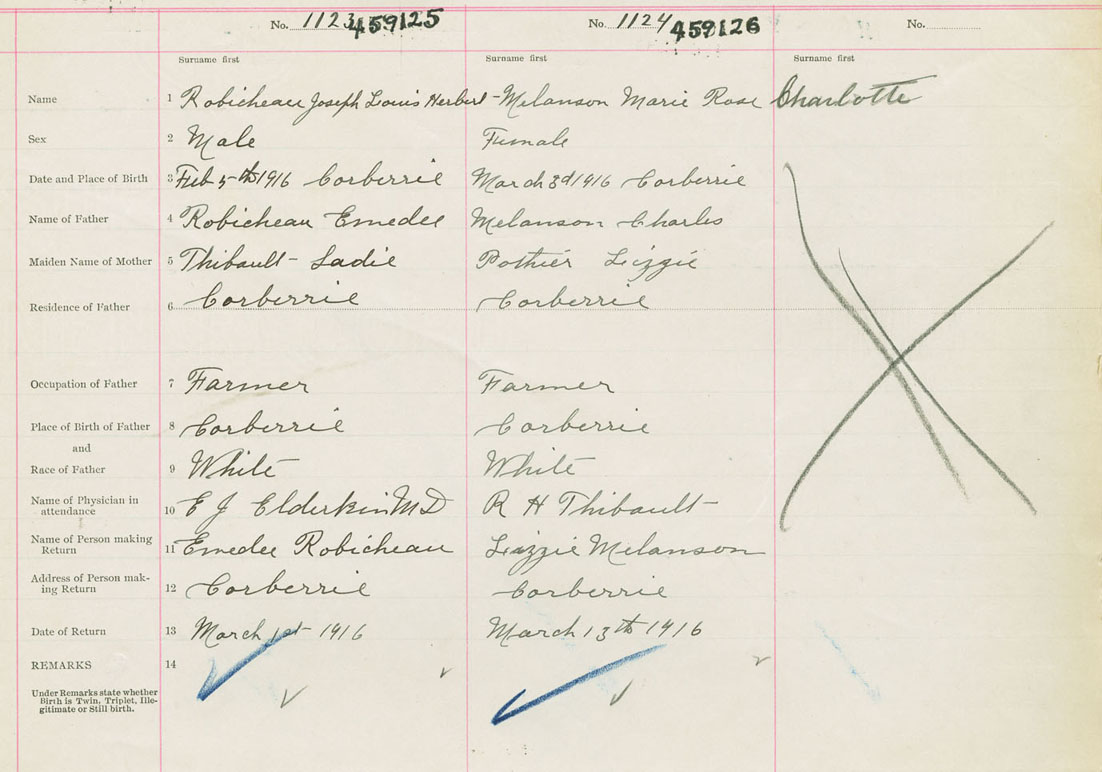 No. 1123 459125 No. 1124 459126 No.
Surname first Surname first Surname first
Name 1 Robicheau Joseph Louis Herbert - Melanson Marie Rose Charlotte
Sex 2 Male Female
Date and Place of Birth 3 Feb 5th 1916 Corberrie March 3d 1916 Corberrie
Name of Father 4 Robicheau Emedee Melanson Charles
Maiden Name of Mother 5 Thibault - Sadie Pothier Lizzie
Residence of Father 6 Corberrie Corberrie
Occupation of Father 7 Farmer Farmer
Place of Birth of Father 8 Corberrie Corberrie
and
Race of Father 9 White White
Name of Physician in
attendance 10 E J Elderkin M D R H Thibault
Name of Person making
Return 11 Emedee Robicheau Lizzie Melanson
Address of Person mak-
ing Return 12 Corberrie Corberrie
Date of Return 13 March 1st 1916 March 13th 1916
REMARKS 14
Under Remarks state whether
Birth is Twin, Triplet, Ille-
gitimate or Still birth.